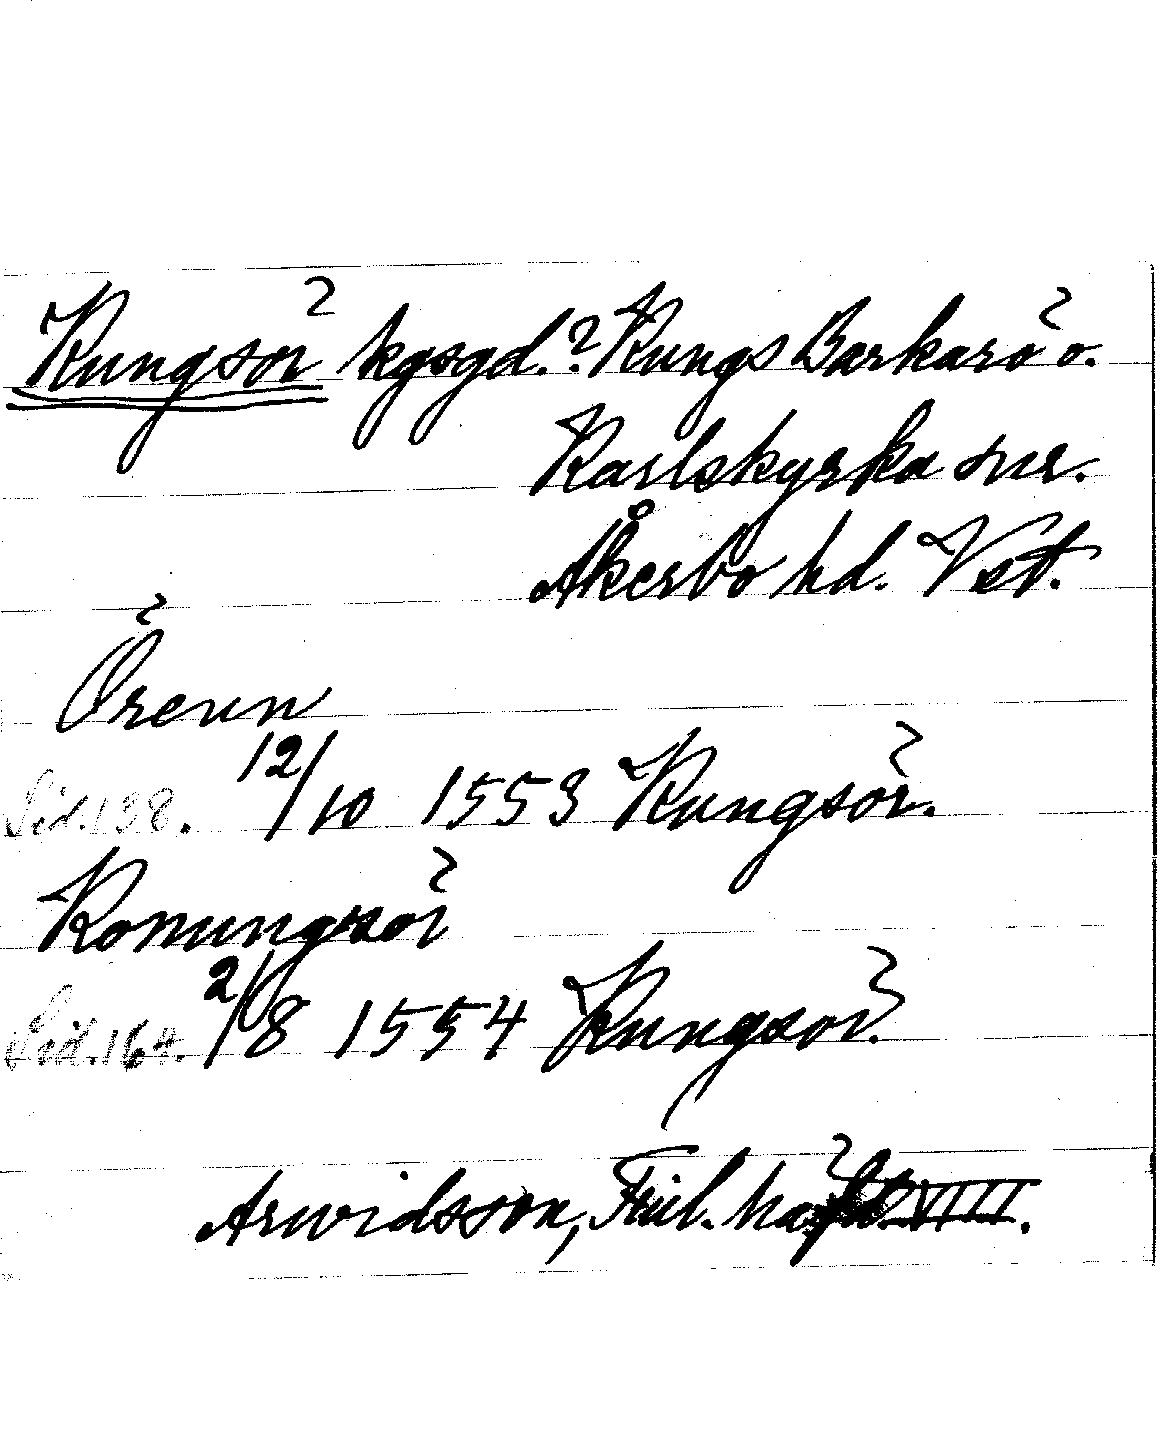 Kungsör kgsgd.? Kungs Barkarö o.
Karlskyrka snr.
Åkerbo hd. Vst.
Örenn
Sid. 138. 12/10 1553 Kungsör.
Konungsör
Sid. 164. 2/8 1554 Kungsör.
Arwidsson, Finl. häfd. VIII.